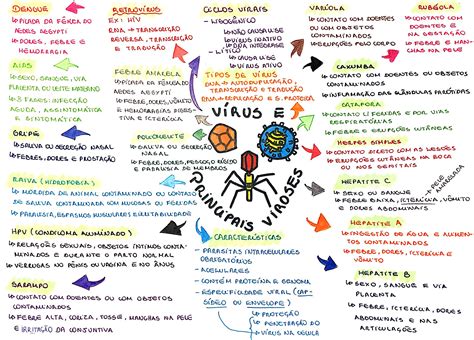 DENGUE
↳ PICADA DA FÊMEA DO
AEDES AEGYPTI
↳ DORES, FEBRE E
HEMORRAGIA.
AIDS
↳ SEXO, SANGUE, VIA
PLACENTA OU LEITE MATERNO
↳ 3 FASES: INFECÇÃO
AGUDA, ASSINTOMÁTICA
E SINTOMÁTICA
GRIPE
↳ SALIVA OU SECREÇÃO NASAL
↳ FEBRE, DORES E PROSTAÇÃO
RAIVA (HIDROFOBIA)
↳ MORDIDA DE ANIMAL CONTAMINADO OU CONTATO
DE SALIVA CONTAMINADA COM MUCOSAS OU FERIDAS
↳ PARALISIA, ESPASMOS MUSCULARES E IRRITABILIDADE
HPV (CONDILOMA ACUMINADO)
↳ RELAÇÕES SEXUAIS, OBJETOS ÍNTIMOS CONTA-
MINADOS E DURANTE O PARTO NORMAL
↳ VERRUGAS NO PÊNIS OU VAGINA E NO ÂNUS
SARAMPO
↳ CONTATO COM DOENTES OU COM OBJETOS
CONTAMINADOS
↳ FEBRE ALTA, CORIZA, TOSSE, MANCHAS NA PELE
E IRRITAÇÃO DA CONJUNTIVA
RETROVÍRUS
EX: HIV
RNA → TRANSCRIÇÃO
REVERSA, TRANSCRIÇÃO
E TRADUÇÃO
FEBRE AMARELA
↳ PICADA FÊMEA DO
AEDES AEGYPTI
↳ FEBRE, DORES, VÔMITO
E HEMORRAGIAS
E ICTERÍCIA
POLIOMIELITE
↳ SALIVA OU SECREÇÃO
NASAL
↳ FEBRE, DORES, PESCOÇO RÍGIDO
E PARALISIA DE MEMBROS
CICLOS VIRAIS
- LISOGÊNICO
↳ NÃO CAUSA LISE
↳ VÍRUS INATIVO
↳ DNA INTEGRASE
- LÍTICO
↳ CAUSA LISE
↳ VÍRUS ATIVO
TIPOS DE VÍRUS
DNA → AUTODUPLICAÇÃO,
TRANSCRIÇÃO E TRADUÇÃO
RNA → DUPLICAÇÃO E S. PROTEICA
VÍRUS E
PRINCIPAIS VIROSES
CARACTERÍSTICAS
- PARASITAS INTRACELULARES
OBRIGATÓRIOS
- ACELULARES
- CONTÉM PROTEÍNA E GENOMA
- ESPECIFICIDADE VIRAL (CAP-
SÍDEO OU ENVELOPE)
↳ PROTEÇÃO
↳ PENETRAÇÃO DO
VÍRUS NA CÉLULA
VARÍOLA
↳ CONTATO COM DOENTES
OU COM OBJETOS
CONTAMINADOS
↳ ERUPÇÕES PELO CORPO
RUBÉOLA
↳ CONTATO COM
DOENTES E
NA GESTAÇÃO
↳ FEBRE E MAN-
CHAS NA PELE
CAXUMBA
↳ CONTATO COM DOENTES OU OBJETOS
CONTAMINADOS
↳ INFLAMAÇÃO DAS GLÂNDULAS PARÓTIDAS
CATAPORA
↳ CONTATO C/ FERIDAS E POR VIAS
RESPIRATÓRIAS
↳ FEBRE E ERUPÇÕES CUTÂNEAS
HERPES SIMPLES
↳ CONTATO DIRETO COM AS LESÕES
↳ ERUPÇÕES CUTÂNEAS NA BOCA
OU NOS GENITAIS
HEPATITE C
↳ SEXO OU SANGUE
↳ FEBRE BAIXA, ICTERÍCIA, VÔMITO
E DORES ABDOMINAIS
↳ PELE
AMARELADA
HEPATITE A
↳ INGESTÃO DE ÁGUA E ALIMEN-
TOS CONTAMINADOS
↳ FEBRE, DORES, ICTERÍCIA E
VÔMITO
HEPATITE B
↳ SEXO, SANGUE E VIA
PLACENTA
↳ FEBRE, ICTERÍCIA, DORES
ABDOMINAIS E NAS
ARTICULAÇÕES